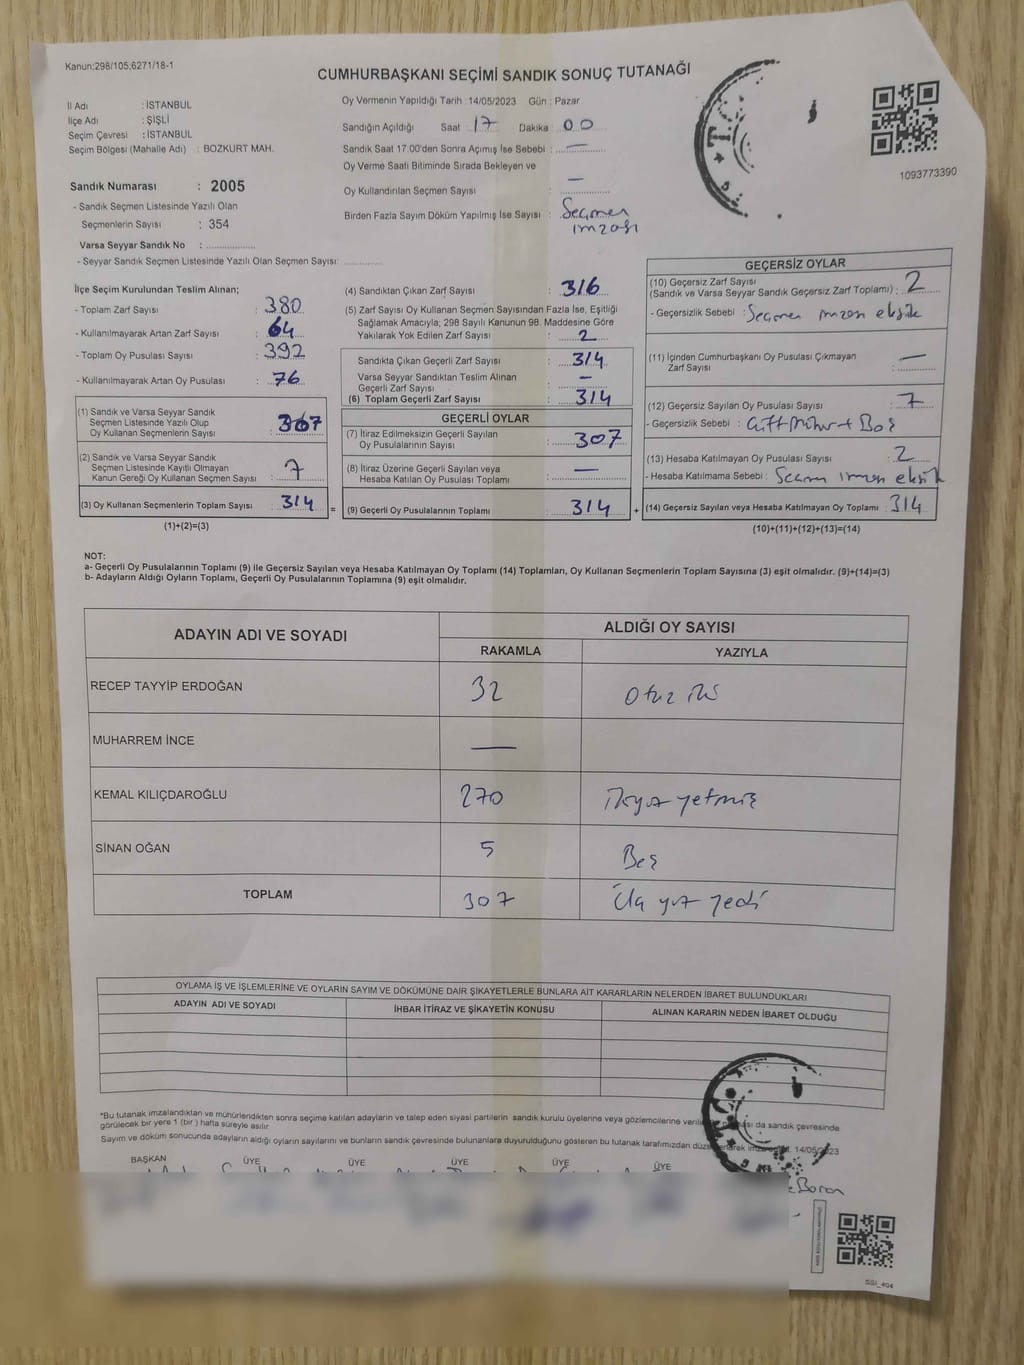 Kanun;298/105;6271/18-1
CUMHURBAŞKANI SEÇİMİ SANDIK SONUÇ TUTANAĞI
İl Adı : İSTANBUL
İlçe Adı : ŞİŞLİ
Seçim Çevresi : İSTANBUL
Seçim Bölgesi (Mahalle Adı) : BOZKURT MAH.
Sandık Numarası : 2005
- Sandık Seçmen Listesinde Yazılı Olan
Seçmenlerin Sayısı : 354
Varsa Seyyar Sandık No : ..............
- Seyyar Sandık Seçmen Listesinde Yazılı Olan Seçmen Sayısı: ..............
Oy Vermenin Yapıldığı Tarih : 14/05/2023 Gün : Pazar
Sandığın Açıldığı Saat : 17 Dakika : 00
Sandık Saat 17.00'den Sonra Açımış İse Sebebi : —
Oy Verme Saati Bitiminde Sırada Bekleyen ve
Oy Kullandırılan Seçmen Sayısı : —
Birden Fazla Sayım Döküm Yapılmış İse Sayısı : Seçmen
imzası
1093773390
İlçe Seçim Kurulundan Teslim Alınan;
- Toplam Zarf Sayısı : 380
- Kullanılmayarak Artan Zarf Sayısı : 64
- Toplam Oy Pusulası Sayısı : 392
- Kullanılmayarak Artan Oy Pusulası : 76
(1) Sandık ve Varsa Seyyar Sandık
Seçmen Listesinde Yazılı Olup
Oy Kullanan Seçmenlerin Sayısı : 307
(2) Sandık ve Varsa Seyyar Sandık
Seçmen Listesinde Kayıtlı Olmayan
Kanun Gereği Oy Kullanan Seçmen Sayısı : 7
(3) Oy Kullanan Seçmenlerin Toplam Sayısı : 314
(1)+(2)=(3)
(4) Sandıktan Çıkan Zarf Sayısı : 316
(5) Zarf Sayısı Oy Kullanan Seçmen Sayısından Fazla İse, Eşitliği
Sağlamak Amacıyla; 298 Sayılı Kanunun 98. Maddesine Göre
Yakılarak Yok Edilen Zarf Sayısı : 2
Sandıkta Çıkan Geçerli Zarf Sayısı : 314
Varsa Seyyar Sandıktan Teslim Alınan
Geçerli Zarf Sayısı : —
(6) Toplam Geçerli Zarf Sayısı : 314
GEÇERLİ OYLAR
(7) İtiraz Edilmeksizin Geçerli Sayılan
Oy Pusulasının Sayısı : 307
(8) İtiraz Üzerine Geçerli Sayılan veya
Hesaba Katılan Oy Pusulası Toplamı : —
= (9) Geçerli Oy Pusulalarının Toplamı : 314
GEÇERSİZ OYLAR
(10) Geçersiz Zarf Sayısı
(Sandık ve Varsa Seyyar Sandık Geçersiz Zarf Toplamı) : 2
- Geçersizlik Sebebi : Seçmen imzası eksik
(11) İçinden Cumhurbaşkanı Oy Pusulası Çıkmayan
Zarf Sayısı : —
(12) Geçersiz Sayılan Oy Pusulası Sayısı : 7
- Geçersizlik Sebebi : Çift Mühür + Boş
(13) Hesaba Katılmayan Oy Pusulası Sayısı : 2
- Hesaba Katılmama Sebebi : Seçmen imzası eksik
+ (14) Geçersiz Sayılan veya Hesaba Katılmayan Oy Toplamı : 314
(10)+(11)+(12)+(13)=(14)
NOT:
a- Geçerli Oy Pusulalarının Toplamı (9) ile Geçersiz Sayılan veya Hesaba Katılmayan Oy Toplamı (14) Toplamları, Oy Kullanan Seçmenlerin Toplam Sayısına (3) eşit olmalıdır. (9)+(14)=(3)
b- Adayların Aldığı Oyların Toplamı, Geçerli Oy Pusulalarının Toplamına (9) eşit olmalıdır.
ADAYIN ADI VE SOYADI
ALDIĞI OY SAYISI
RAKAMLA YAZIYLA
RECEP TAYYİP ERDOĞAN 32 Otuz iki
MUHARREM İNCE —
KEMAL KILIÇDAROĞLU 270 İkiyüz yetmiş
SİNAN OĞAN 5 Beş
TOPLAM 307 Üç yüz yedi
OYLAMA İŞ VE İŞLEMLERİNE VE OYLARIN SAYIM VE DÖKÜMÜNE DAİR ŞİKAYETLERLE BUNLARA AİT KARARLARIN NELERDEN İBARET BULUNDUKLARI
ADAYIN ADI VE SOYADI İHBAR İTİRAZ VE ŞİKAYETİN KONUSU ALINAN KARARIN NEDEN İBARET OLDUĞU
*Bu tutanak imzalandıktan ve mühürlendikten sonra seçime katılan adayların ve talep eden siyasi partilerin sandık kurulu üyelerine veya gözlemcilerine da sandık çevresinde
görülecek bir yere 1 (bir) hafta süreyle asılır
Sayım ve döküm sonucunda adayların aldığı oyların sayılarını ve bunların sandık çevresinde bulunanlara duyurulduğunu gösteren bu tutanak tarafımızdan 14/05/2023
BAŞKAN ÜYE ÜYE ÜYE ÜYE ÜYE
SSI_404